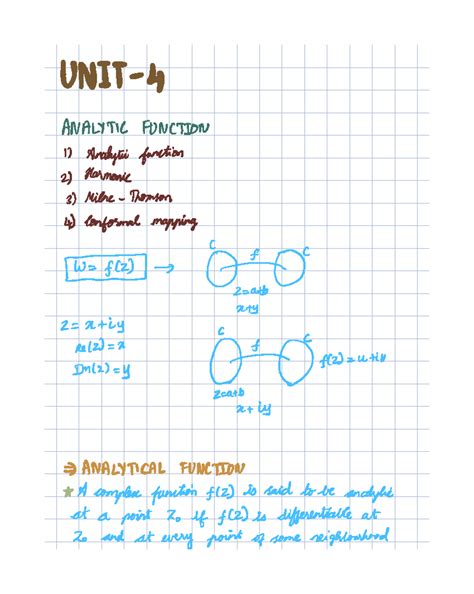 UNIT-4
ANALYTIC FUNCTION
1) Analytic function
2) Harmonic
3) Milne - Thomson
4) Conformal mapping
W = f(z) →
C f C
z=a+b
x+y
z = x+iy
Re(z) = x
Im(z) = y
C f C
f(z) = u+iv
z=a+b
x+iy
⇒ ANALYTICAL FUNCTION
★ A complex function f(z) is said to be analytic
at a point Z₀ if f(z) is differentiable at
Z₀ and at every point of some neighbourhood